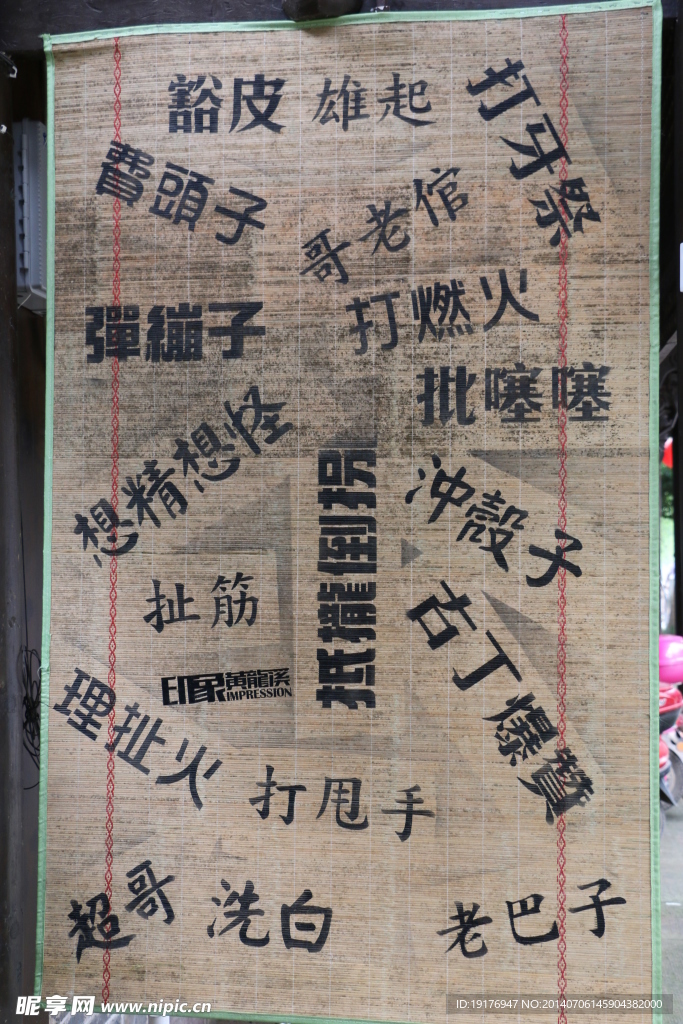 豁皮
雄起
打牙祭
費頭子
哥老倌
彈繃子
打燃火
批噻噻
想精想怪
抵攏倒拐
沖殼子
扯筋
古丁爆贊
印象黃龍溪
IMPRESSION
理扯火
打甩手
超哥
洗白
老巴子
昵享网 www.nipic.cn
ID:19176947 NO:20140706145904382000